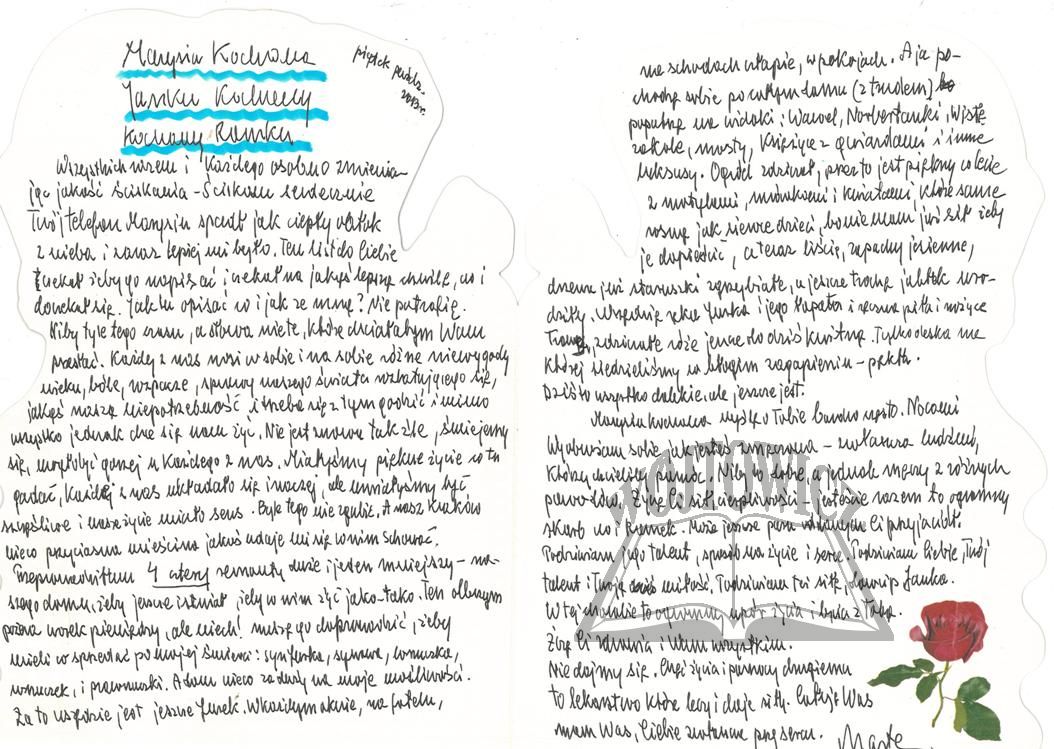 Marysiu Kochana
Janku Kochany
Kochany Romku
piątek paźdz.
2013r.
Wszystkich razem i każdego osobno zmienia-
jąc jakość ściskania – Ściskam serdecznie
Twój telefon Marysiu spadł jak ciepły płatek
z nieba i zaraz lepiej mi było. Ten list do Ciebie
czekał żeby go napisać i czekał na jakąś lepszą chwilę, no i
doczekał się. Jak tu opisać co i jak ze mną? Nie potrafię.
Niby tyle tego szumu, a słowa nie te, które chciałabym Wam
posłać. Każdy z nas nosi w sobie i na sobie różne niewygody
wieku, bóle, rozpacze, sprawy naszego świata
jakąś naszą niepotrzebność i trzeba się z tym godzić i mimo
wszystko jednak chce się nam żyć. Nie jest znowu tak źle, śmiejemy
się, mogłoby być gorzej u każdego z nas. Miałyśmy piękne życie co tu
gadać, każdej z nas układało się inaczej, ale umiałyśmy być
szczęśliwe i nasze życie miało sens. Byle tego nie zgubić. A nasz Kraków
nieco przyciasna mieścina jakoś udaje mi się w nim schować.
Przeprowadziłam 4 cztery remonty duże i jeden mniejszy – na-
szego domu, żeby jeszcze istniał, żeby w nim żyć jako-tako. Ten olbrzym
pożera worek pieniędzy, ale niech! muszę go doprowadzić, żeby
mieli co sprzedać po mojej śmierci: synowa, wnuczka,
wnuczek, i prawnuczki. A dom nieco za duży na moje możliwości.
Za to wszędzie jest jeszcze Jurek. W każdym oknie, na fotelu,
na schodach człapie, w pokojach. A ja po-
chodzę sobie po całym domu (z trudem)
popatrzę na widoki: Wawel, Norbertanki, Wisłę
zakole, mosty, Księżyc z gwiazdami i inne
luksusy. Ogród zdziczał, przez to jest piękny w lecie
z motylami, mrówkami i kwiatami, które same
rosną jak sieroce dzieci, bo nie mam już sił żeby
je dopieścić, a teraz liście, zapachy jesienne,
drzewa już staruszki zgrzybiałe, a jeszcze trochę jabłek uro-
dziły. Wszędzie ręka Jurka i jego łopata i ręczna piła i nożyce
zdziczałe róże jeszcze do dziś kwitną. Tylko deska na
której siedzieliśmy w błogim zagapieniu – pękła.
Dziś to wszystko dalekie, ale jeszcze jest.
Marysiu kochana myślę o Tobie bardzo często. Nocami
Wyobrażam sobie jak jesteś zmęczona – zwłaszcza ludźmi,
którzy chcieliby pomóc. Niby to dobre, a jednak męczy z różnych
powodów. Życzę Ci sił, cierpliwości – jesteście razem to ogromny
skarb no i Romek. Może jeszcze paru Ci przyjaciół.
Podziwiam jego talent, sposób na życie i serce. Podziwiam Ciebie, Twój
talent i Twoją miłość. Podziwiam też siłę, dowcip Janka.
W tej chorobie to ogromny upór życia i bycia z Tobą.
Życzę Ci zdrowia i Wam wszystkim.
Nie dajmy się. Chęć życia i pomocy drugiemu
to lekarstwo które leczy i daje siły. Całuję Was
mam Was, Ciebie zwłaszcza przy sercu.
Marta